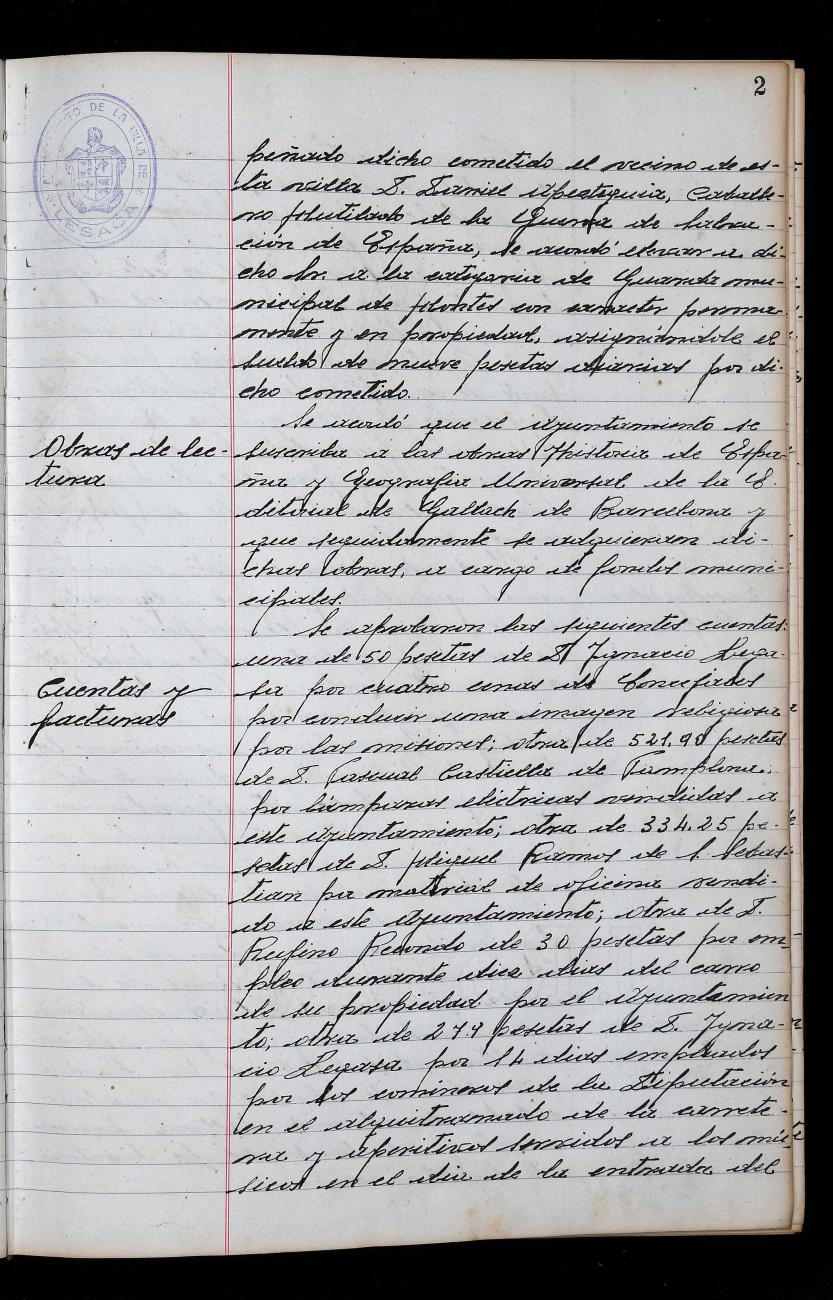 2
AYUNTAMIENTO DE LA VILLA DE
LESACA
peñado dicho cometido el vecino de es-
ta villa D. Daniel Apesteguia, Caballe-
ro Mutilado de la Guerra de Libera-
ción de España, se acordó elevar a di-
cho Sr. a la categoria de Guarda mu-
nicipal de Montes con caracter perma-
nente y en propiedad, asignándole el
sueldo de nueve pesetas diarias por di-
cho cometido.
Obras de lec-
tura
Se acordó que el Ayuntamiento se
suscriba a las obras Historia de Espa-
ña y Geografia Universal de la E-
ditorial de Gallach de Barcelona y
que seguidamente se adquieran di-
chas obras, a cargo de fondos muni-
cipales.
Cuentas y
facturas
Se aprobaron las siguientes cuentas:
una de 50 pesetas de D. Ignacio Lega-
sa por cuatro cenas de
por conducir una imagen religiosa
por las misiones; otra de 521,90 pesetas
de D. Pascual Castiella de Pamplona,
por lámparas eléctricas vendidas a
este Ayuntamiento; otra de 334,25 pe-
setas de D. Miguel Ramos de S. Sebas-
tian por material de oficina vendi-
do a este Ayuntamiento; otra de D.
Rufino Recondo de 30 pesetas por em-
pleo durante diez dias del carro
de su propiedad por el Ayuntamien
to; otra de 279 pesetas de D. Igna-
cio Legasa por 14 dias empleados
por los camineros de la Diputación
en el alquitranado de la carrete-
ra y aperitivos servidos a los mú-
sicos en el dia de la entrada del